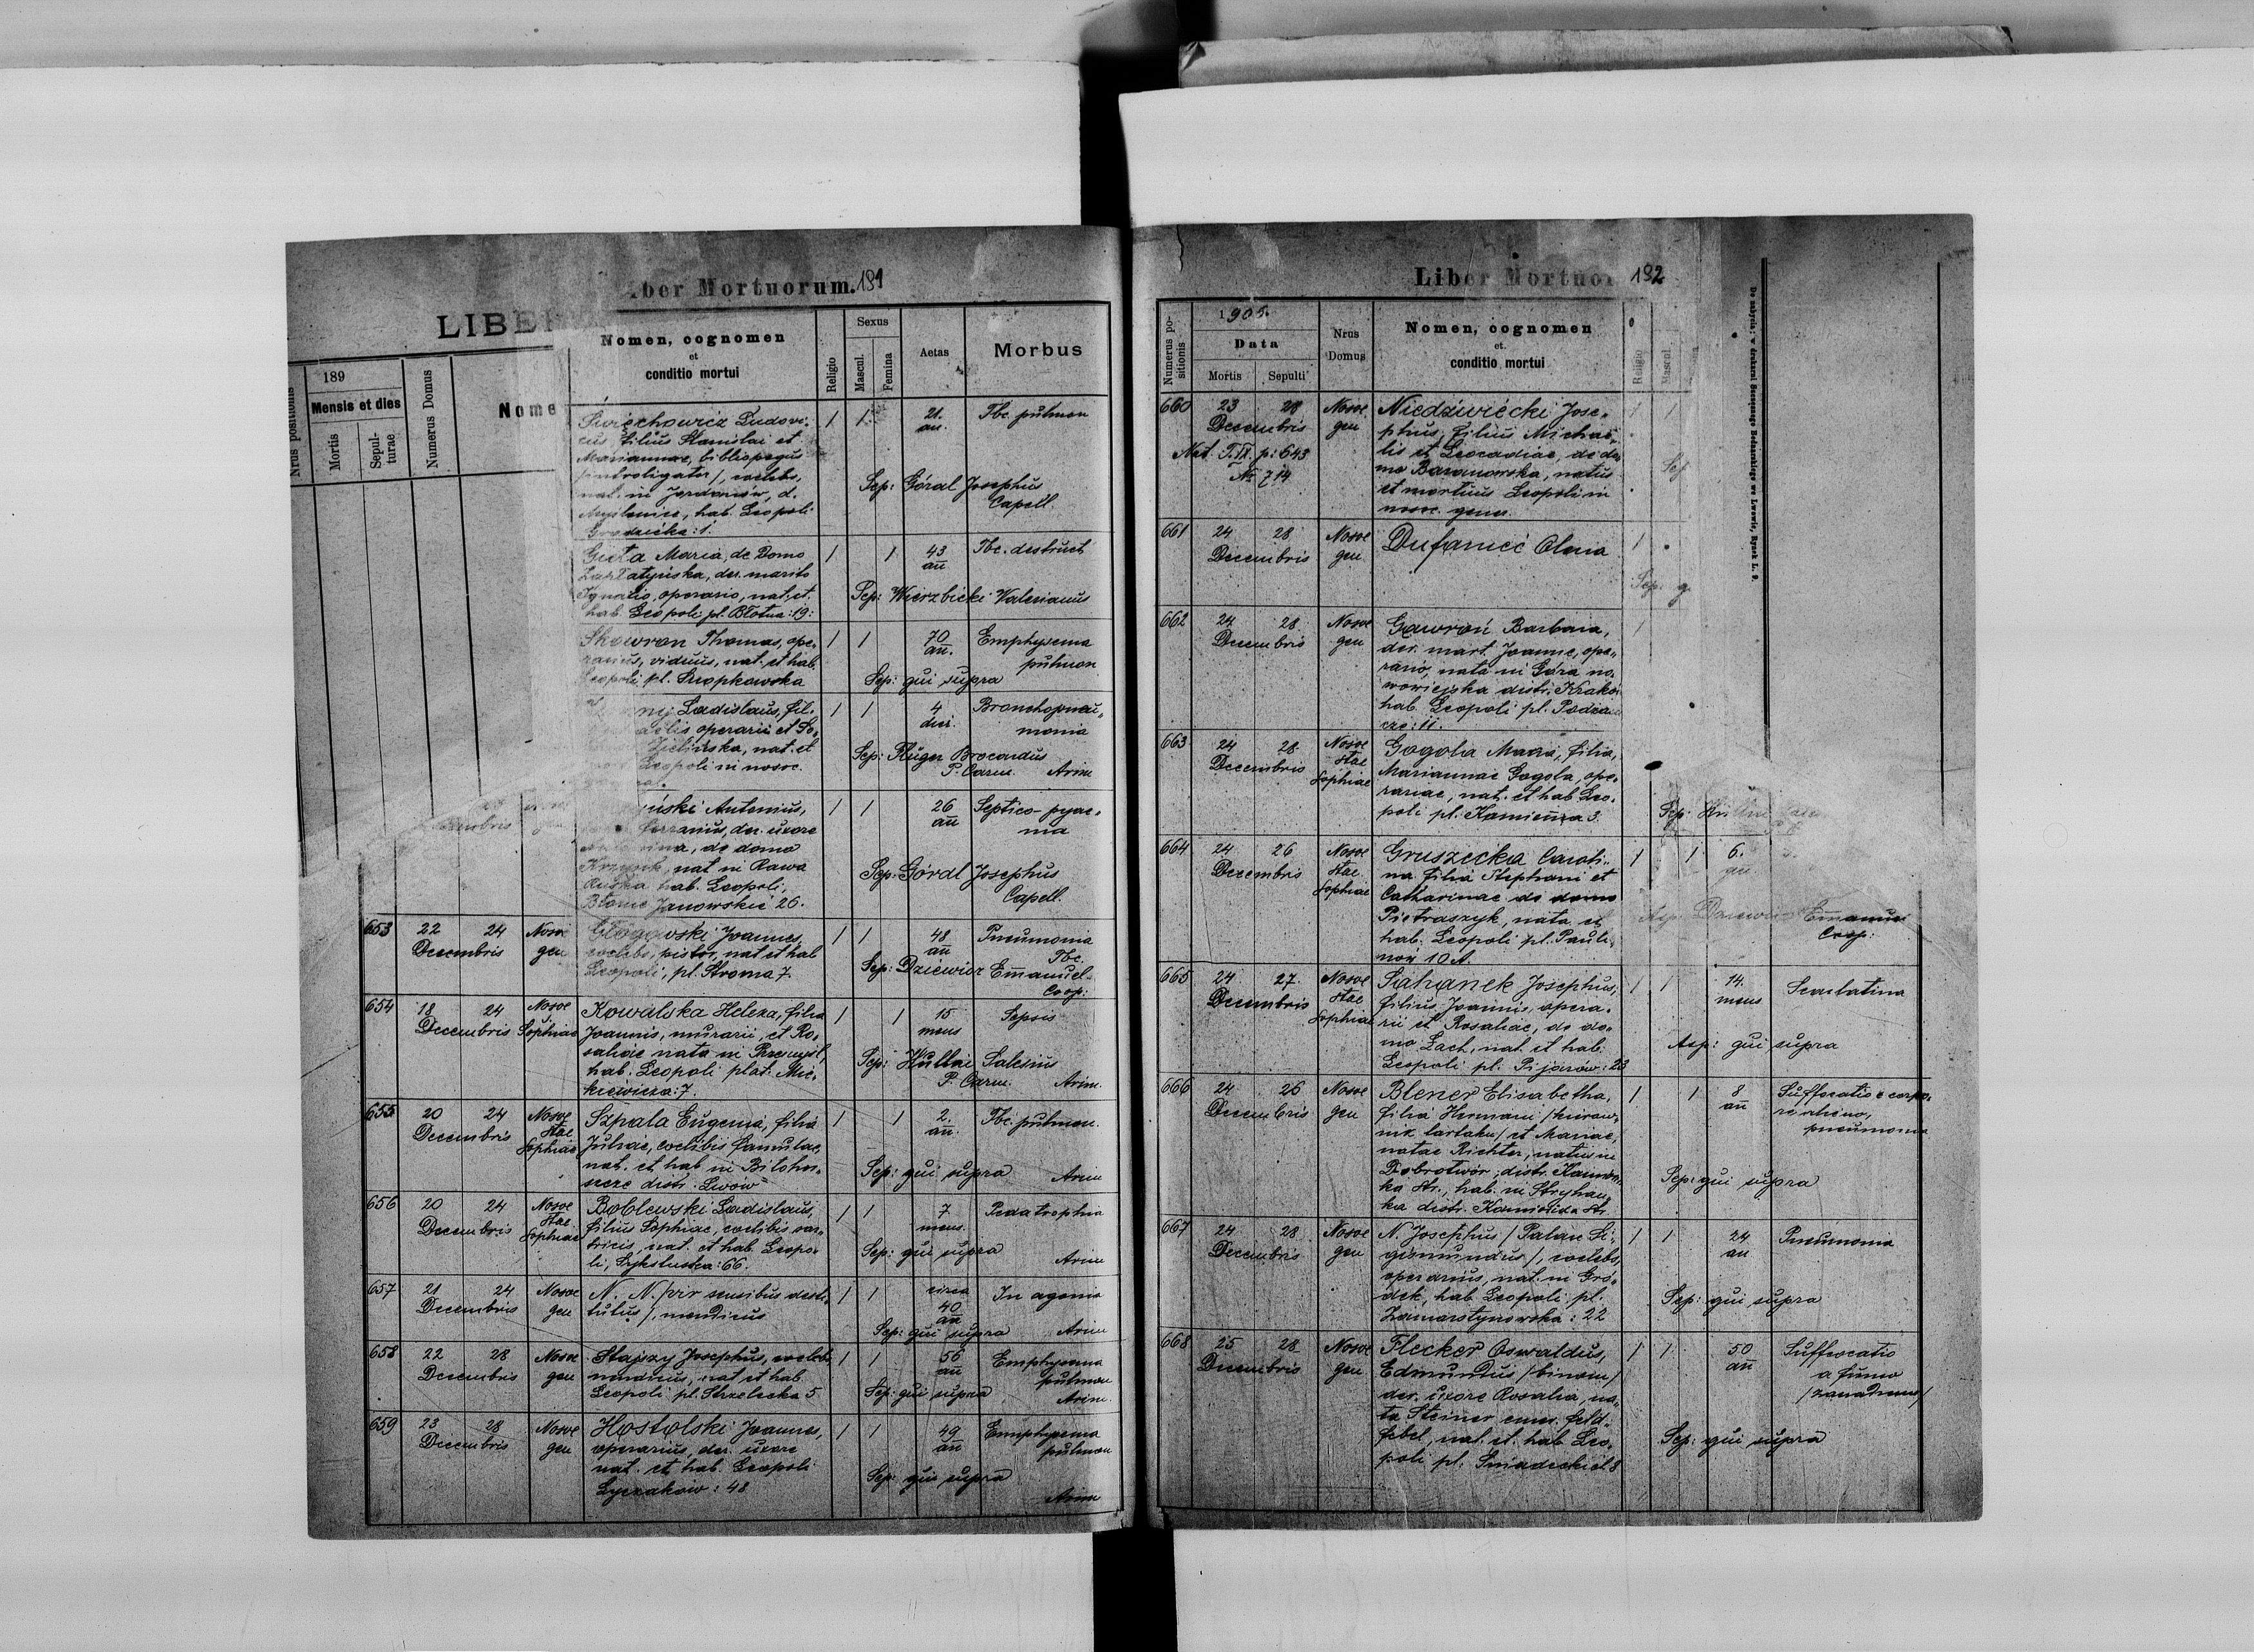 Liber Mortuorum. 191
LIBE
189
Mensis et dies
Nrus positionis
Mortis
Sepul-
turae
Numerus Domus
Nome
Nomen, cognomen
et
conditio mortui
Religio
Sexus
Mascul.
Femina
Aetas
Morbus
Święchowicz Ludovi-
cus, filius Stanislai et
Mariannae, bibliopegus
/introligator/, coelebs,
nat. in Jordanów, d.
Myślenice, hab. Leopoli
Grodecka: 1.
1 1 21. an. Tbc. pulmon
Sep: Góral Josephus
Capell.
Guta Maria, de Domo
der. marito
Ignatio, operario, nat. et.
hab. Leopoli pl. Błotna: 19:
1 1 43 an Tbc. destruct
Sep: Wierzbicki Valerianus
Skowron Thomas, ope-
rarius, viduus, nat. et hab.
Leopoli, pl. Snopkowska
1 1 70 an. Emphysema
pulmon
Sep: gui supra
Ladislaus, fil.
operarii et So-
Zielińska, nat. et
Leopoli in nosoc.
1 1 4 dier. Bronchopneu-
monia
Sep: Fluger Brocardus
P. Carm. Arim
Antonius,
ferrarius, der. uxore
de domo
nat in Rawa
Ruska hab. Leopoli,
Błonie Janowskie 26.
1 1 26 an Septico-pyae-
mia
Sep: Góral Josephus
Capell.
653 22 24 Nosoc
Decembris gen
Głogowski Joannes,
coelebs, pistor, nat et hab
Leopoli, pl. Stroma 7
1 1 48 an Pneumonia
Tbc.
Sep: Dziewior Emanuel
Coop:
654 18 24 Nosoc
Decembris S. Sophiae
Kowalska Helena, filia
Joannis, murarii, et Ro-
saliae nata in Przemyśl,
hab. Leopoli plat. Mic-
kiewicza: 7.
1 1 15 mens Sepsis
Sep: Hullai Salesius
P. Carm. Arim.
655 20 24 Nosoc
Decembris Stae
Sophiae
Szpala Eugenia, filia
Juliae, coelibis famulae,
nat. et hab in Biłohor-
szcze distr. Lwów
1 1 2. an. Tbc. pulmon.
Sep: gui supra Arim
656 20 24 Nosoc
Decembris Stae
Sophiae
Boblewski Ladislaus,
filius Sophiae, coelibis sar-
tricis, nat. et hab. Leopo-
li, Sykstuska: 66.
1 1 7 mens. Pedatrophia
Sep: gui supra Arim
657 21 24 Nosoc
Decembris gen
N. N. /vir sensibus desti-
tutus/, mendicus
1 1 circa 40 an In agonia
Sep: gui supra Arim
658 22 28 Nosoc
Decembris gen
Stajszy Josephus, coelebs,
mendicus, nat et hab
Leopoli pl. Strzelecka 5
1 1 56 an Emphysema
pulmon
Sep: gui supra Arim.
659 23 28 Nosoc
Decembris gen
Hostolski Joannes,
operarius, der. uxore
nat. et hab. Leopoli
Łyczaków: 48
1 1 49 an Emphysema
pulmon
Sep: gui supra
Arim
Liber Mortuor 192
Numerus po-
sitionis
1905.
Data
Mortis Sepulti
Nrus
Domus
Nomen, cognomen
et.
conditio mortui
Religio
Mascul.
660 23 28 Nosoc.
Decembris gen
Nat. T. IX p: 643
№ 714
Niedźwiecki Jose-
phus, filius Michaë-
lis et Leocadiae, de do-
mo Baranowska, natus
et mortuus Leopoli in
nosoc. gener.
1 1
Sep
661 24 28 Nosoc
Decembris gen
Dufaniec Olena
1
Sep. g
662 24 28 Nosoc
Decembris gen
Gawroń Barbara,
der. marit. Joanne, ope-
rario, nata in Góra no-
wowiejska distr. Kraków
hab. Leopoli pl. Podzam-
cze: 11.
1
663 24 28 Nosoc
Decembris Stae
Sophiae
Gogola Maria, filia,
Mariannae Gogola, ope-
rariae, nat. et hab Leo-
poli pl. Kamienna 3.
Sep:
664 24 26 Nosoc
Decembris Stae
Sophiae
Gruszecka Caroli-
na filia Stephani et
Catharinae de domo
Pietraszyk, nata et
hab. Leopoli pl. Pauli-
nów 10 A.
1 1 6. an.
Asp. Dziewior Emanuel
Coop:
665 24 27 Nosoc
Decembris Stae
Sophiae
Sahanek Josephus,
filius Joannis, opera-
rii et Rosaliae, de do-
mo Lach, nat. et hab.
Leopoli pl. Pijarów: 23
1 1 14. mens Scarlatina
Asp: gui supra
666 24 26 Nosoc
Decembris gen
Blener Elisabetha,
filia Hermani /kierow-
nik tartaku/ et Mariae,
natae Richter, natus in
Dobrotwór, distr. Kamion-
ka str., hab. in Stryhan-
ka distr. Kamionka str.
1 1 8 an Suffocatio e corpo-
re alieno,
pneumonia
Sep: gui supra
667 24 28 Nosoc
Decembris gen
N. Josephus /Palan Si-
gismundus/, coelebs,
operarius, nat. in Gró-
dek, hab. Leopoli pl.
Zamarstynowska: 22
1 1 24 an Pneumonia
Sep: gui supra
668 25 28 Nosoc
Decembris gen
Flecker Oswaldus,
Edmundus /binom/
der. uxore Rosalia, na-
ta Steiner emer. feld-
febel, nat. et. hab Leo-
poli pl. Śniadeckich 8
1 1 50 an Suffocatio
a fumo
Sep: gui supra